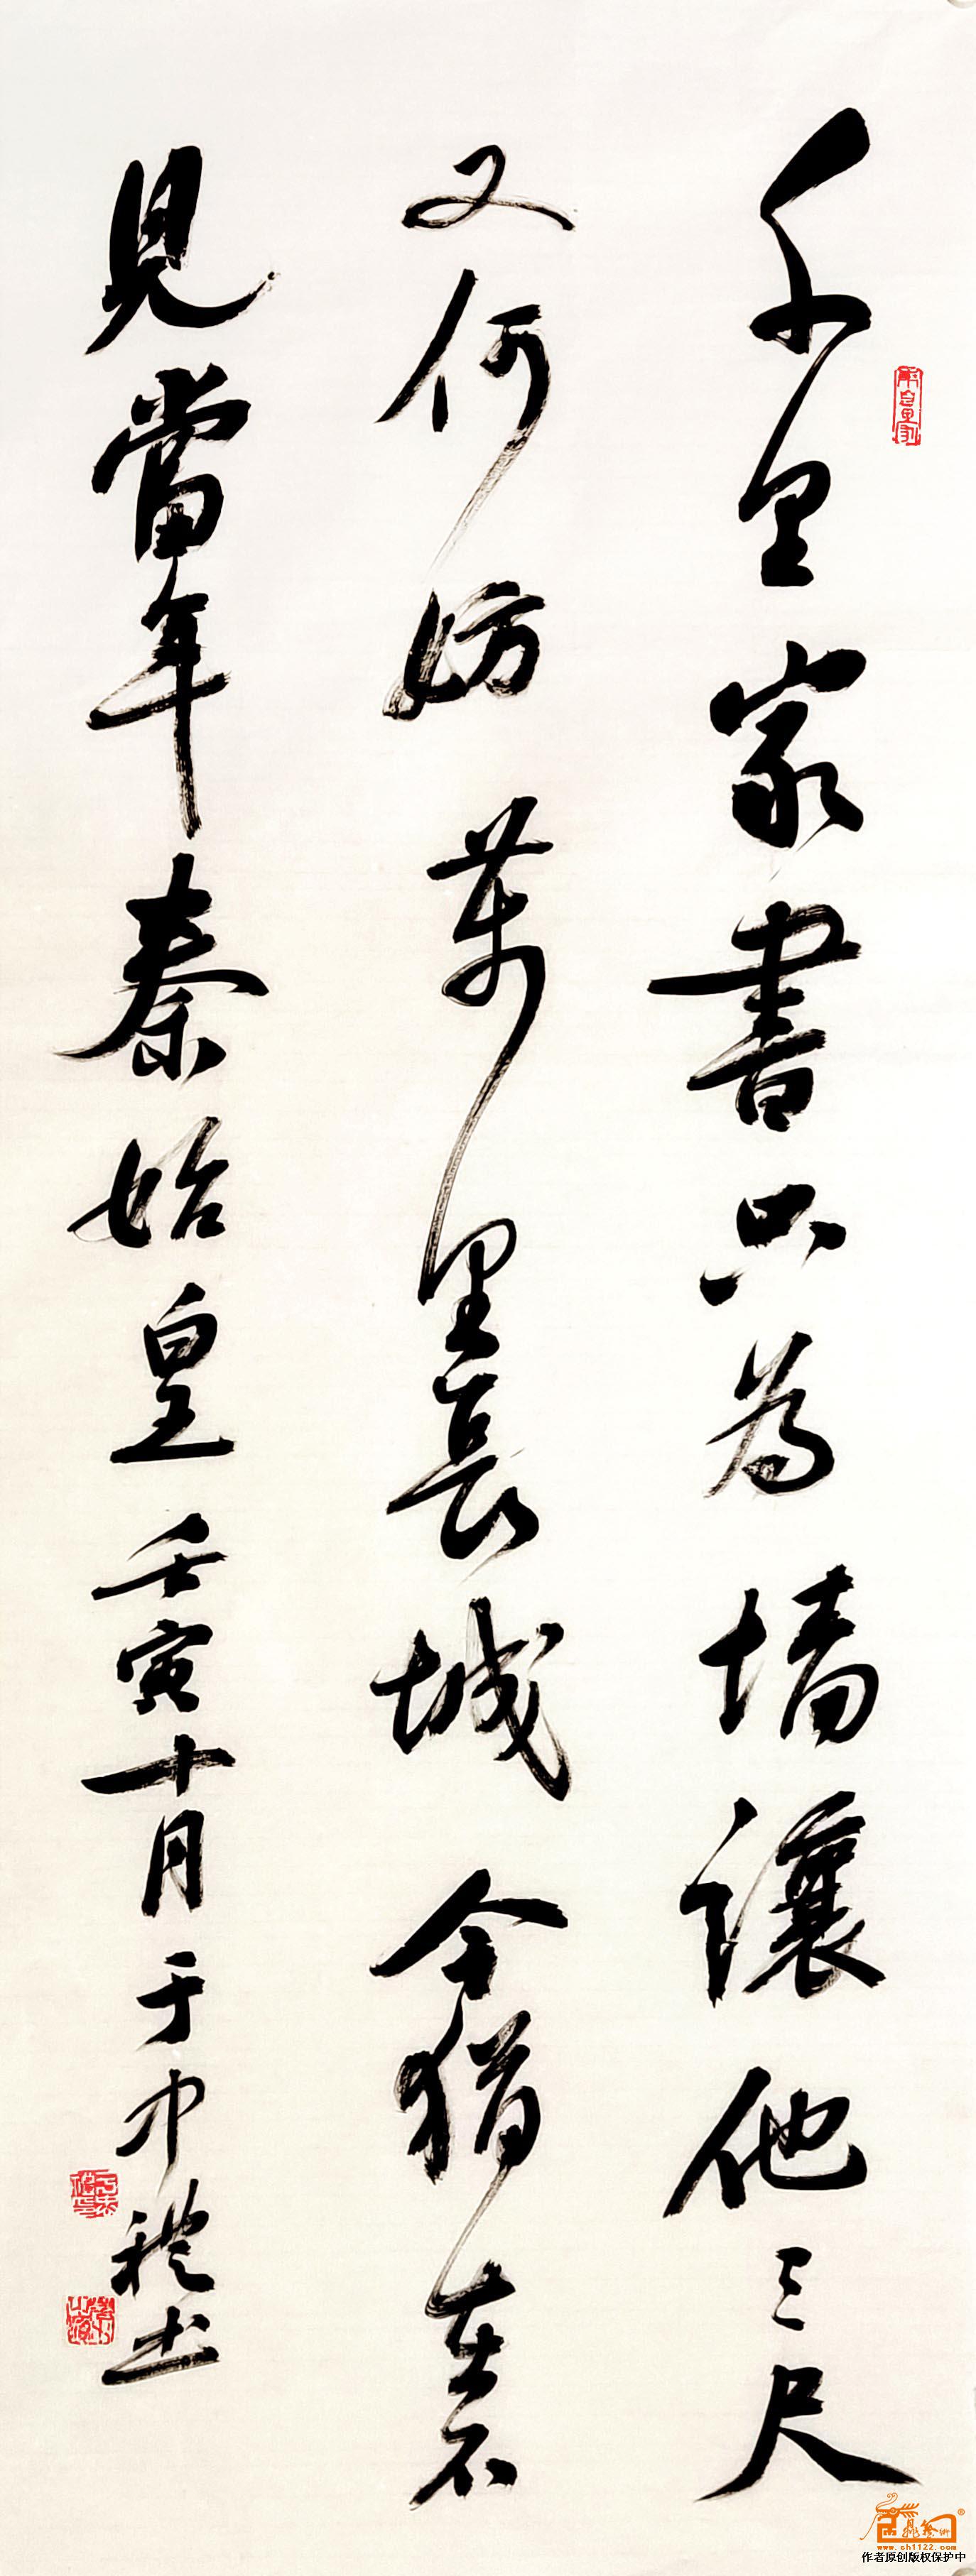 千里家書只為墙讓他三尺
又何妨萬里長城今猶在不
見當年秦始皇壬寅十月于中禮书
www.sh1122.com
作者原创版权保护中